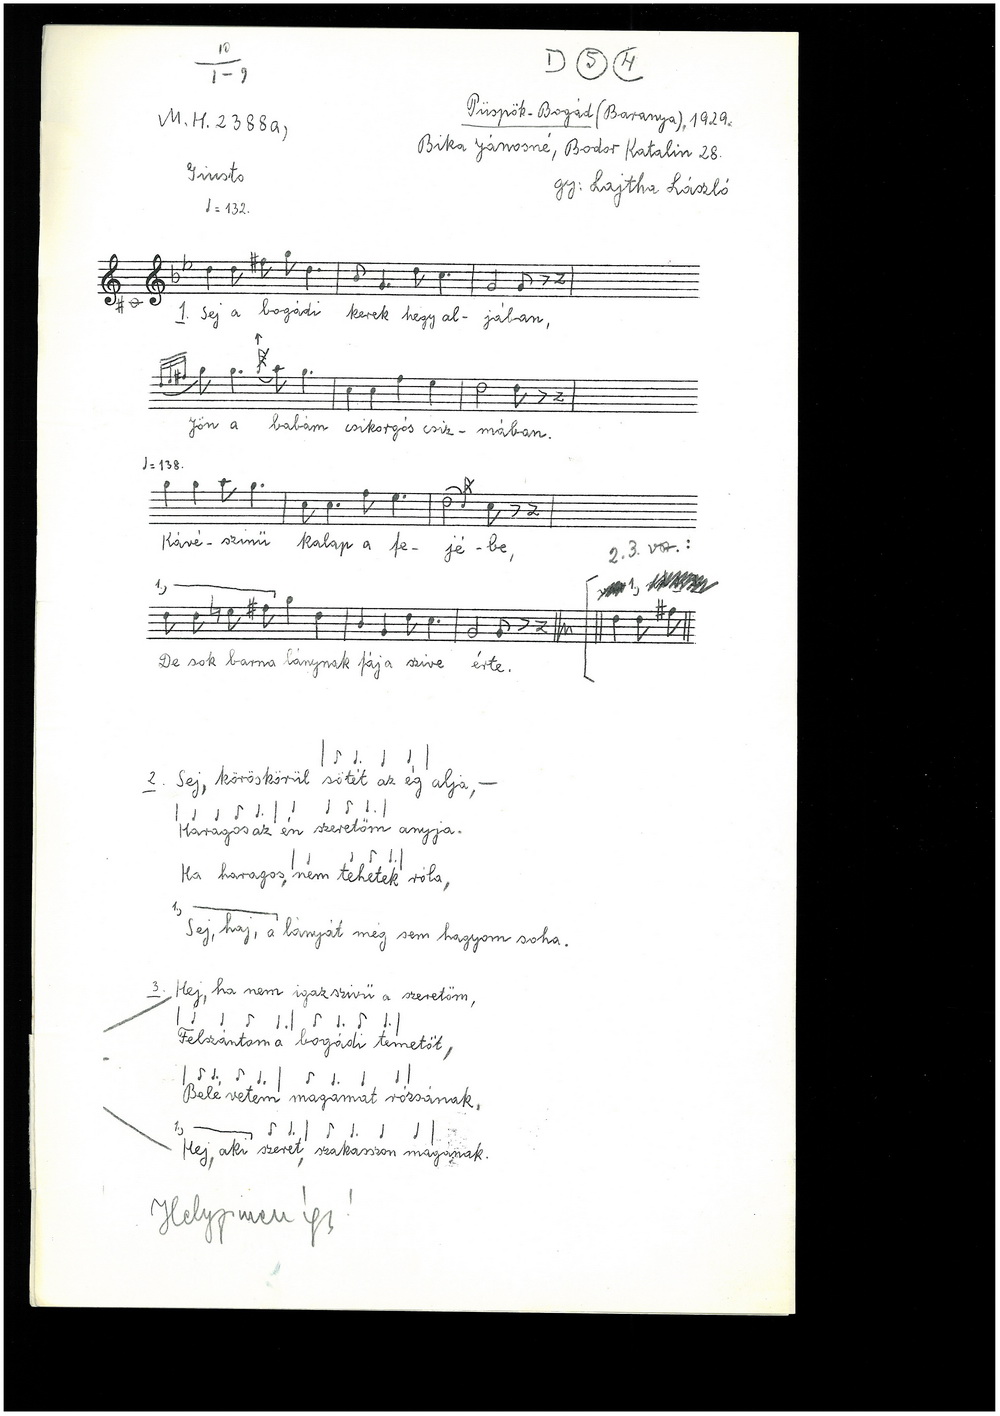 10
1-9
D 5 4
M.H. 2388a,
Püspök-Bogád (Baranya), 1929.
Bika Jánosné, Bodor Katalin 28.
Giusto
gy: Lajtha László
♩= 132.
1. Sej a bogádi kerek hegy al- jában,
Jön a babám csikorgós csiz- mában.
♩= 138.
Kávé- szinü kalap a fe- jé-be,
2.3. vsz.:
1,
1,
De sok barna lánynak fája szive érte.
2. Sej, köröskörül sötét az ég alja,—
Haragos az én szeretőm anyja.
Ha haragos, nem tehetek róla,
1,
Sej, haj, a lányát még sem hagyom soha.
3. Hej, ha nem igaz szivü a szeretőm,
Felszántom a bogádi temetőt,
Belé vetem magamat rózsának,
1,
Hej, aki szeret, szakasszon magának.